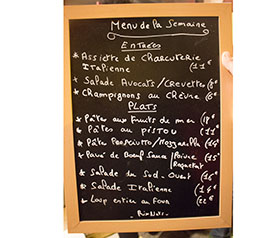 Menu de la Semaine
Entrées
* Assiette de Charcuterie
Italienne (11€
* Salade Avocats/Crevettes (8€
* Champignons au Chèvre (8€
PLATS
* Pâtes aux Fruits de mer (18€
* Pâtes au pistou (11€
* Pâte Prosciutto/Mozzarella (14€
* Pavé de Boeuf Sauce/Poivre (15€
Roquefort
* Salade du Sud-Ouest (16€
* Salade Italienne (14€
* Loup entier au Four (22€